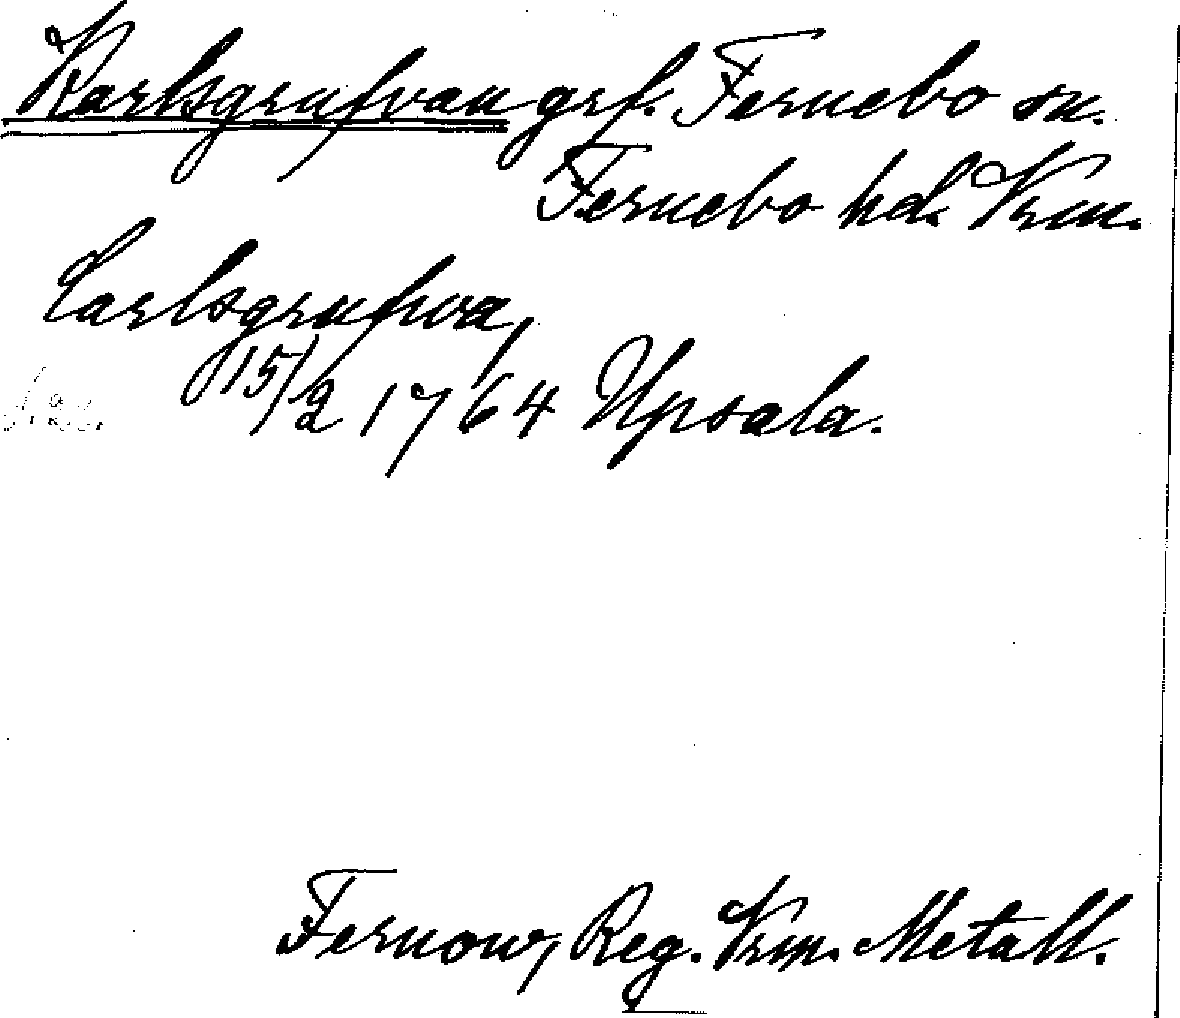 Karlsgrufvan grf. Fernebo sn.
Fernebo hd. Vrm.
Carlsgrufwa,
15/2 1764 Upsala.
Fernow, Reg. Vrm. Metall.